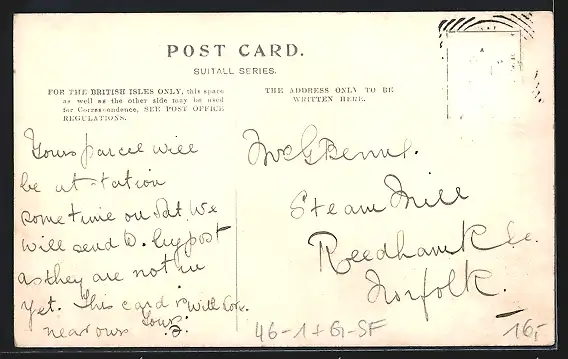 POST CARD.
SUITALL SERIES.
FOR THE BRITISH ISLES ONLY, this space
as well as the other side may be used
for Correspondence, SEE POST OFFICE
REGULATIONS.
THE ADDRESS ONLY TO BE
WRITTEN HERE.
Yours parcel will
be at station
sometime on Sat. We
will send D. by post
as they are not in
yet. This card is with love.
near ours Yours
Steam Mill
Reedham
Norfolk.
46-1+G-SF
16,-